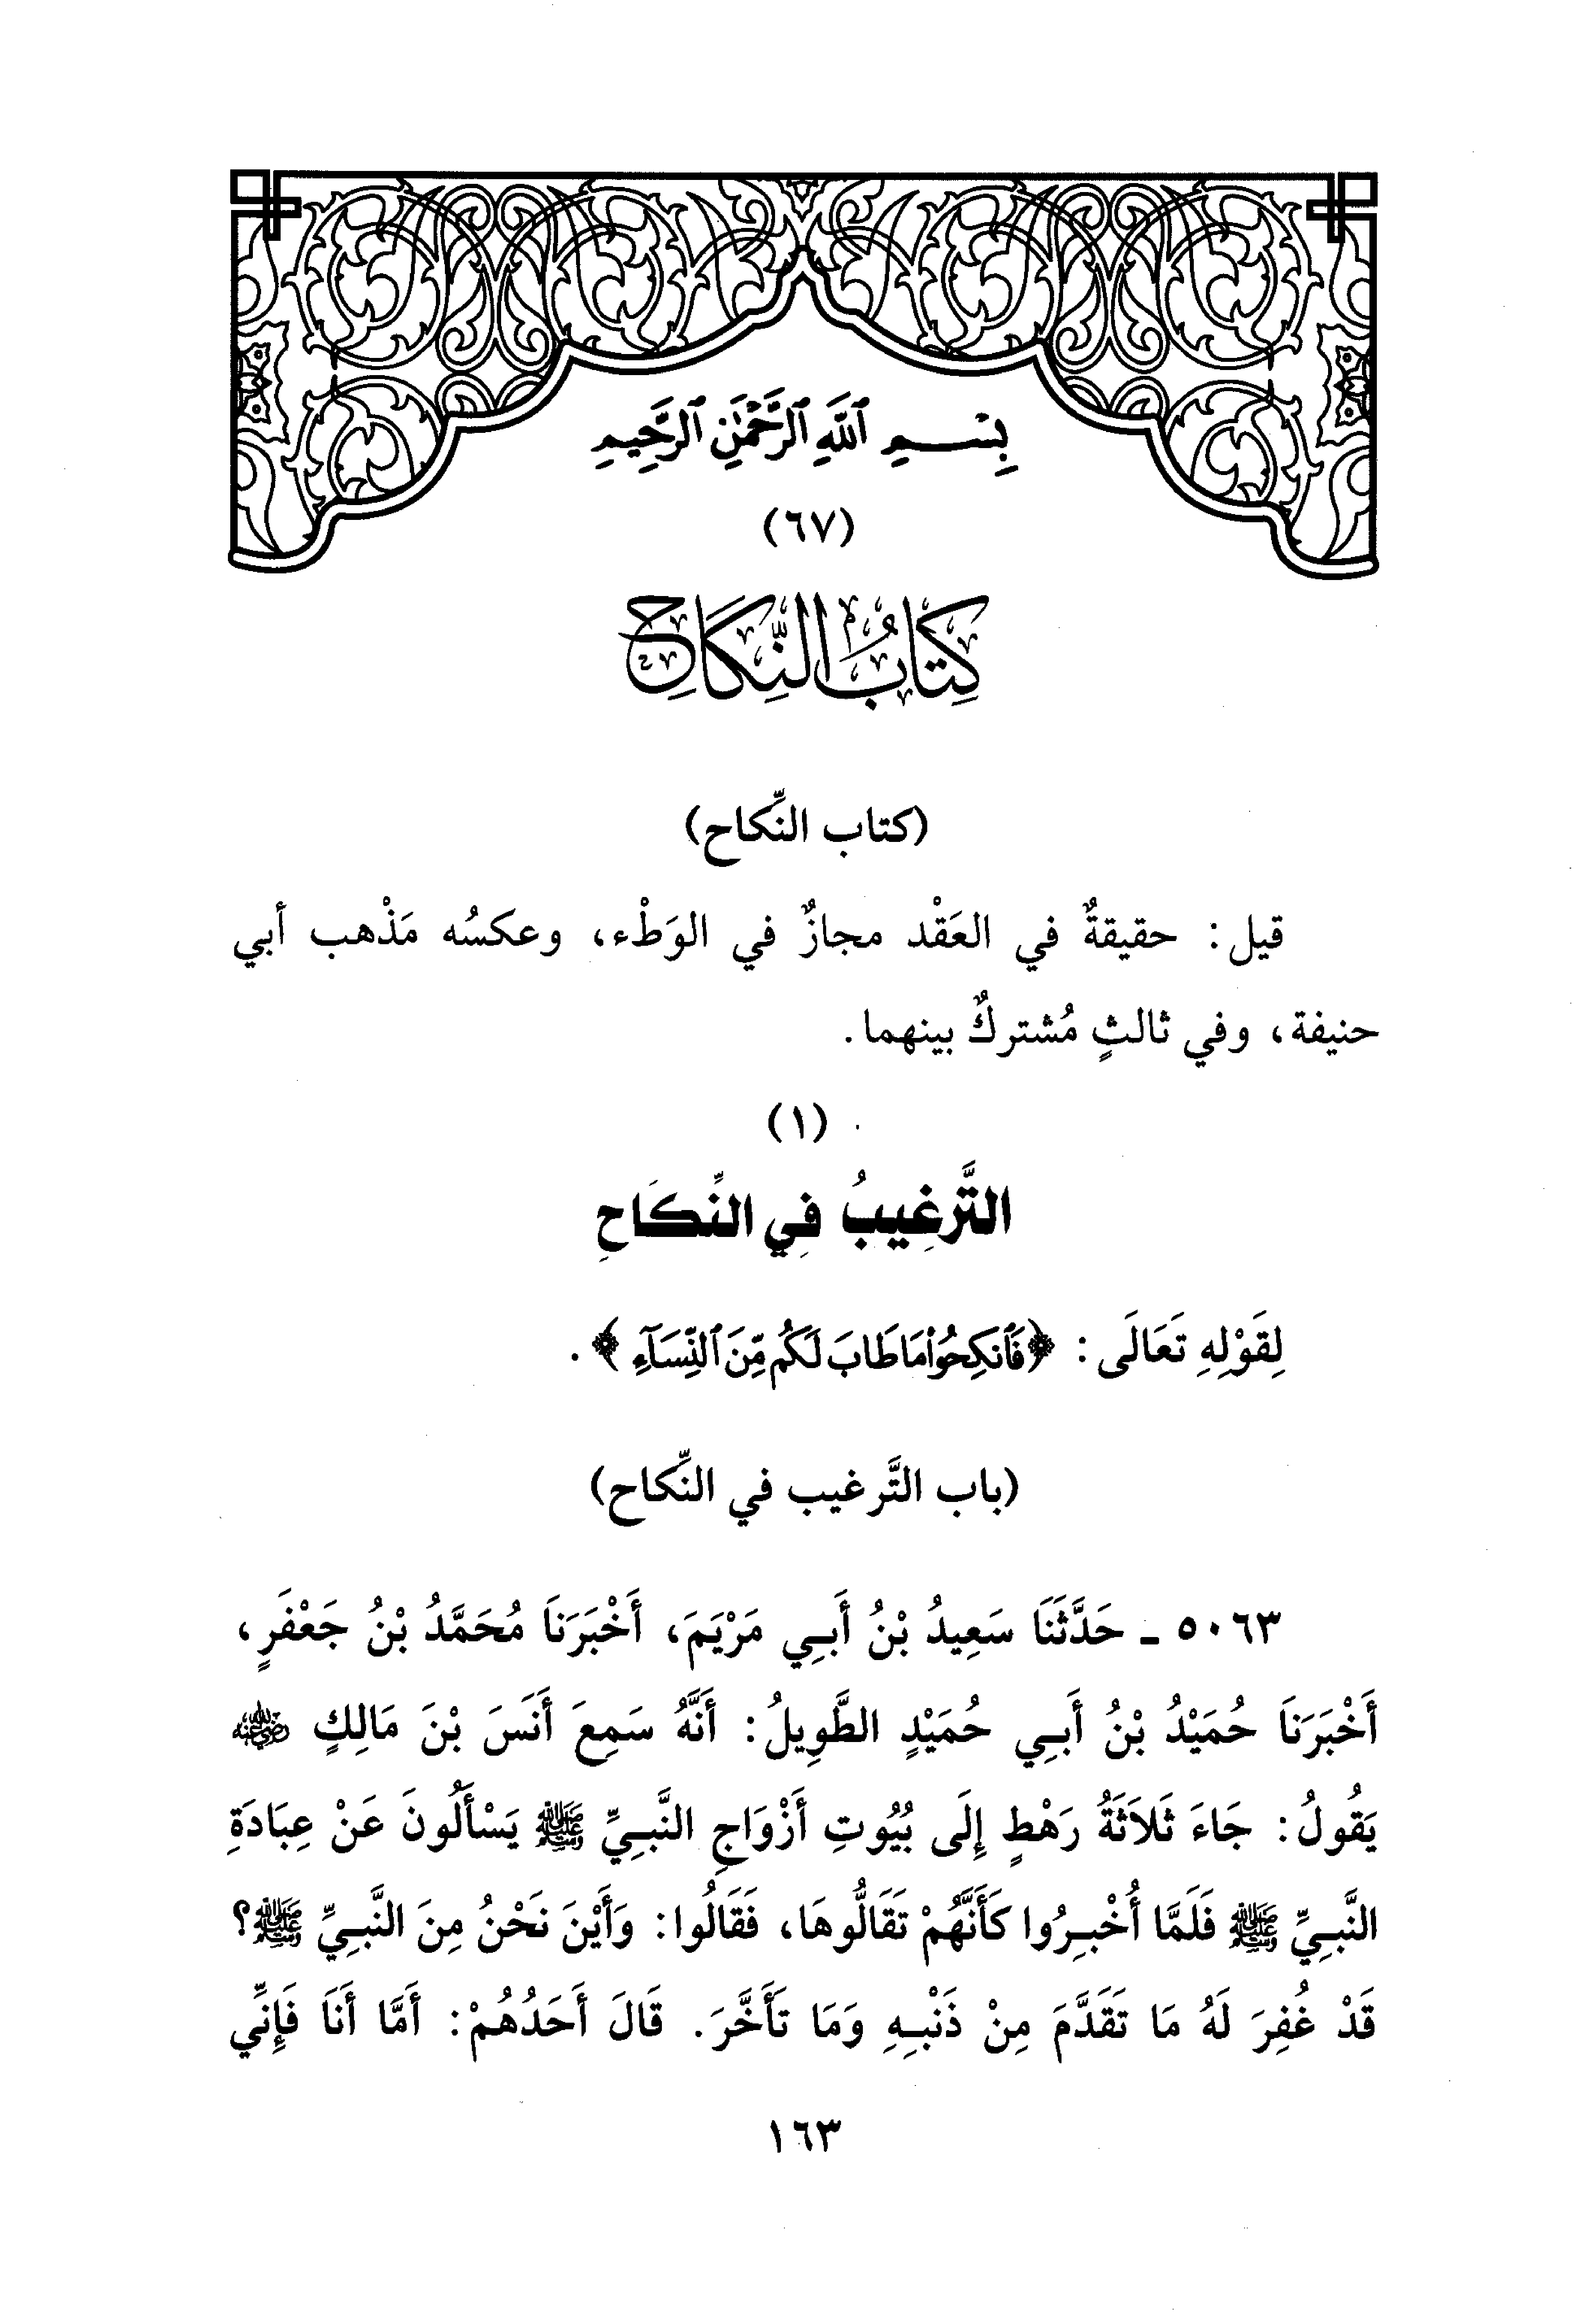 بِسْمِ ٱللَّهِ ٱلرَّحْمَٰنِ ٱلرَّحِيمِ
(٦٧)
كِتَابُ النِّكَاحِ
(كتاب النِّكاح)
قيل: حقيقةٌ في العَقْد مجازٌ في الوَطْء، وعكسُه مَذْهب أبي
حنيفة، وفي ثالثٍ مُشتركٌ بينهما.
(١)
التَّرغِيبُ فِي النِّكَاحِ
لِقَوْلِهِ تَعَالَى: ﴿فَٱنكِحُوا۟ مَا طَابَ لَكُم مِّنَ ٱلنِّسَآءِ﴾.
(باب التَّرغيب في النِّكاح)
٥٠٦٣ ـ حَدَّثَنَا سَعِيدُ بْنُ أَبِي مَرْيَمَ، أَخْبَرَنَا مُحَمَّدُ بْنُ جَعْفَرٍ،
أَخْبَرَنَا حُمَيْدُ بْنُ أَبِي حُمَيْدٍ الطَّوِيلُ: أَنَّهُ سَمِعَ أَنَسَ بْنَ مَالِكٍ رضي الله عنه
يَقُولُ: جَاءَ ثَلاَثَةُ رَهْطٍ إِلَى بُيُوتِ أَزْوَاجِ النَّبِيِّ ﷺ يَسْأَلُونَ عَنْ عِبَادَةِ
النَّبِيِّ ﷺ فَلَمَّا أُخْبِرُوا كَأَنَّهُمْ تَقَالُّوهَا، فَقَالُوا: وَأَيْنَ نَحْنُ مِنَ النَّبِيِّ ﷺ؟
قَدْ غُفِرَ لَهُ مَا تَقَدَّمَ مِنْ ذَنْبِهِ وَمَا تَأَخَّرَ. قَالَ أَحَدُهُمْ: أَمَّا أَنَا فَإِنِّي
١٦٣